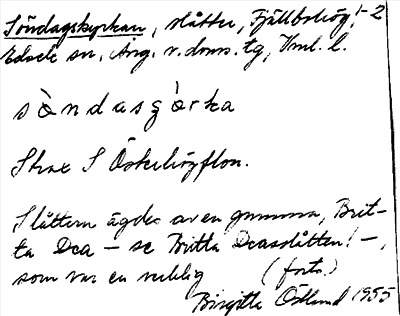 Söndagskyrkan, slåtter, Fjällbohög! -2
Edsele sn, Ång. v. doms. tg, Vnl. l.
sòndasçòrka
Strax S Öskehögflon.
Slåttern ägdes av en gumma, Brit-
ta Dea — se Britta Deasslåtten! —,
som var en verklig (forts.)
Birgitta Östlund 1955